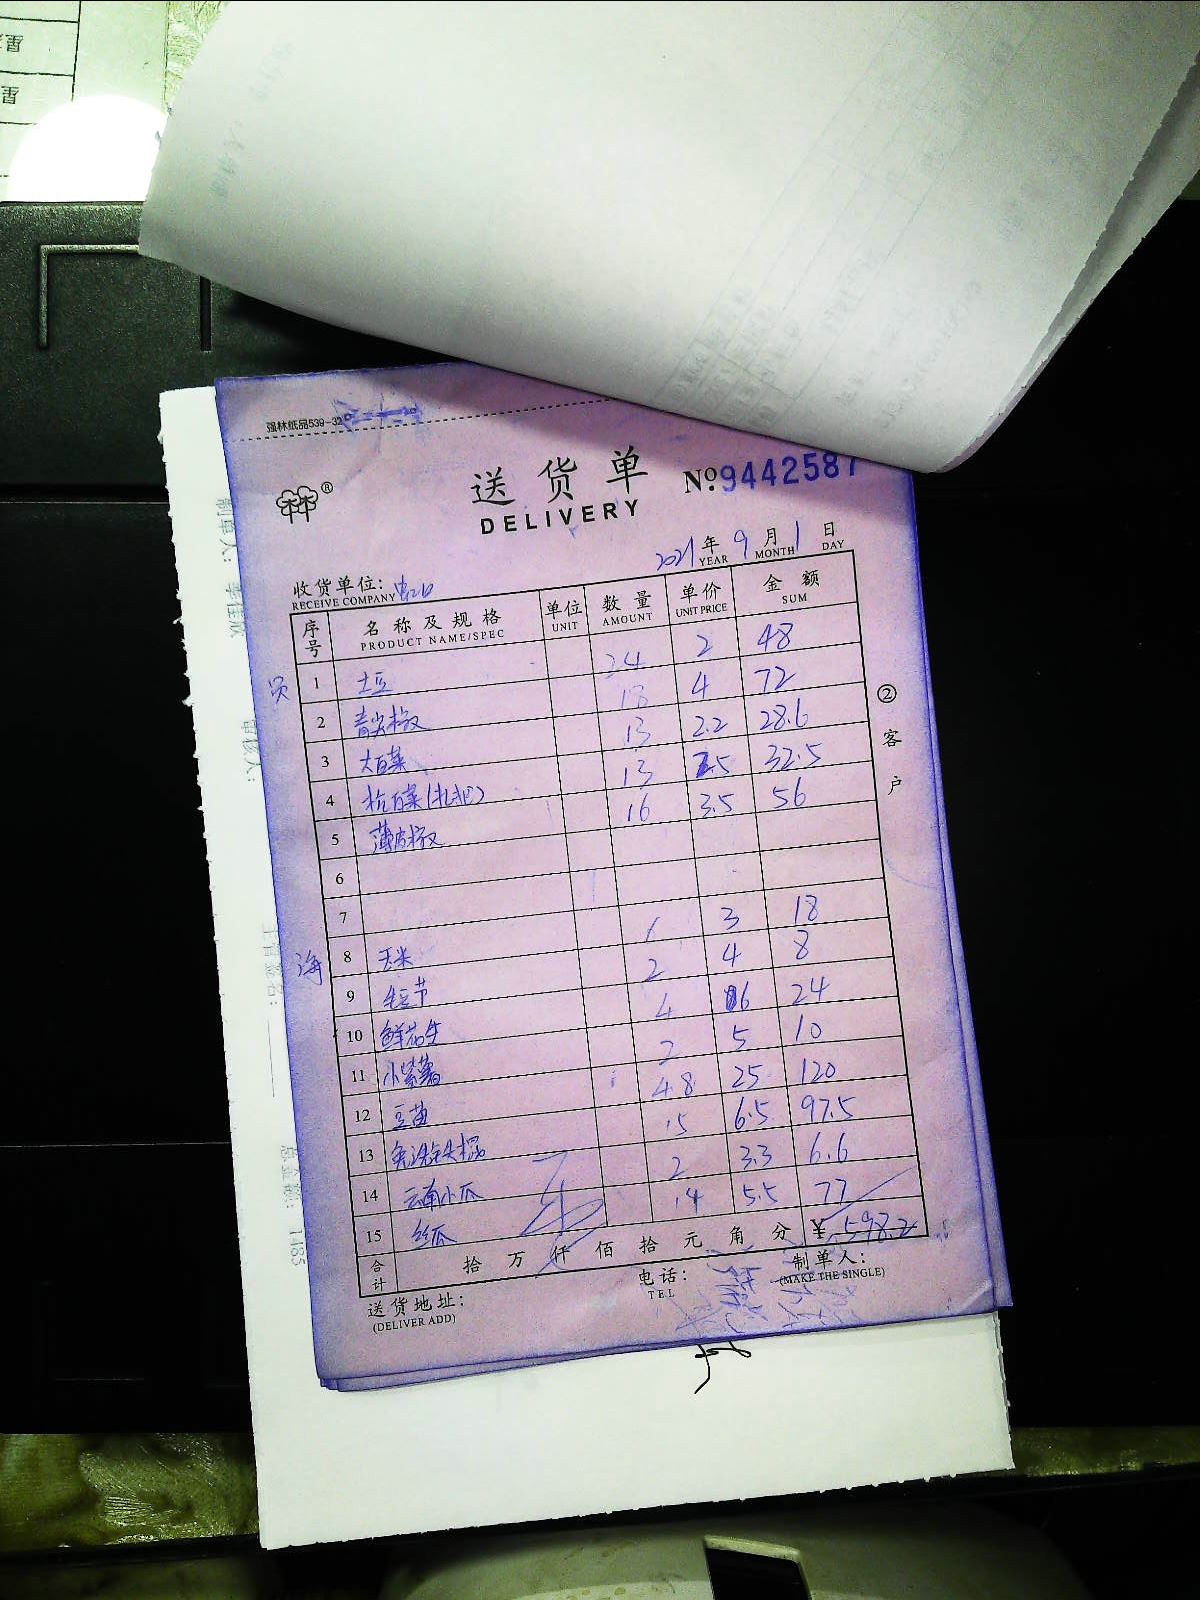 星
星
强林纸品539-32
送货单
DELIVERY
№.9442587
2021年9月1日
YEAR MONTH DAY
收货单位：虹口
RECEIVE COMPANY
序号 名称及规格 单位 数量 单价 金额
PRODUCT NAME/SPEC UNIT AMOUNT UNIT PRICE SUM
1 土豆 24 2 48
2 青尖椒 18 4 72
3 大白菜 13 2.2 28.6
4 杭白菜 13 2.5 32.5
5 薄皮椒 16 3.5 56
6
7
8 玉米 1 3 18
9 毛豆节 2 4 8
10 鲜花生 4 6 24
11 小紫薯 2 5 10
12 豆苗 4.8 25 120
13 15 6.5 97.5
14 云南小瓜 2 3.3 6.6
15 丝瓜 14 5.5 77
合计 拾万仟佰拾元角分 ¥598.2
送货地址：
(DELIVER ADD)
电话：
TEL
制单人：
(MAKE THE SINGLE)
员
海
②客户
制单人：
审核人：
总金额：1485